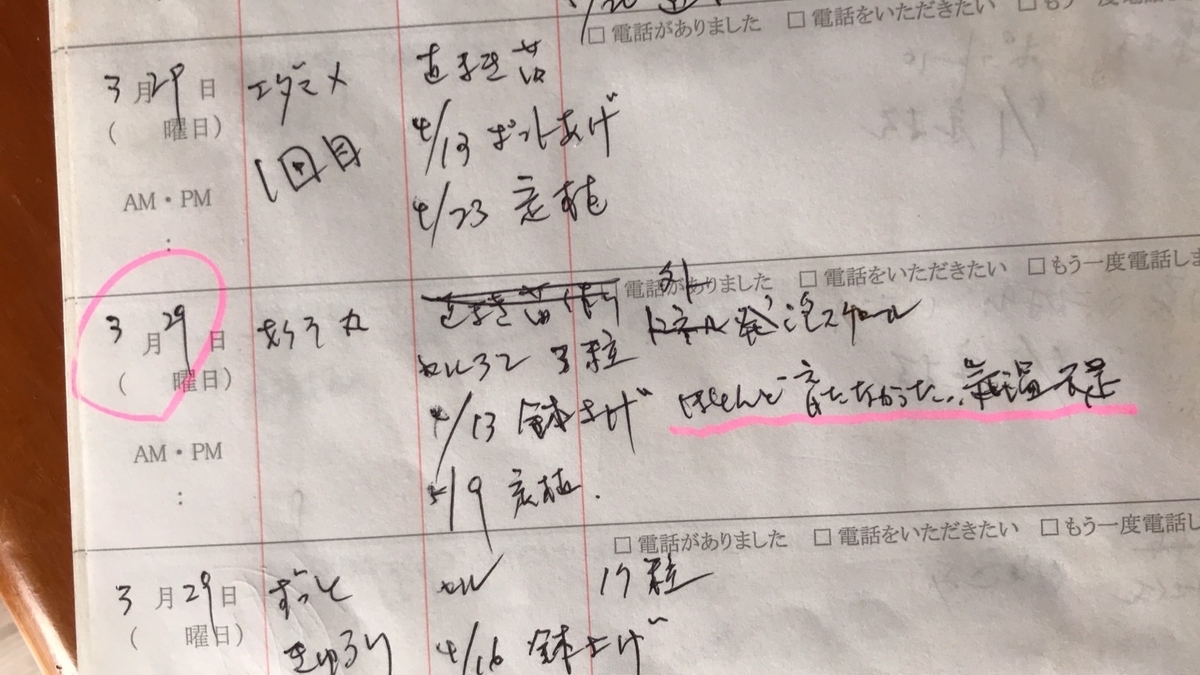 □ 電話がありました □ 電話をいただきたい □ もう一度電話しま
3月29日 エダマメ 直まき苗
( 曜日) 1回目 4/13 ポットあげ
AM・PM 4/23 定植
:
□ 電話がありました □ 電話をいただきたい □ もう一度電話しま
3月29日 直まき苗 外
( 曜日) セル32 3粒 発泡スチロール
4/13 鉢上げ ほとんど育たなかった... 気温不足
AM・PM 5/9 定植.
:
□ 電話がありました □ 電話をいただきたい □ もう一度電話し
3月29日 ずっと セル 17粒
( 曜日) きゅうり 4/16 鉢上げ